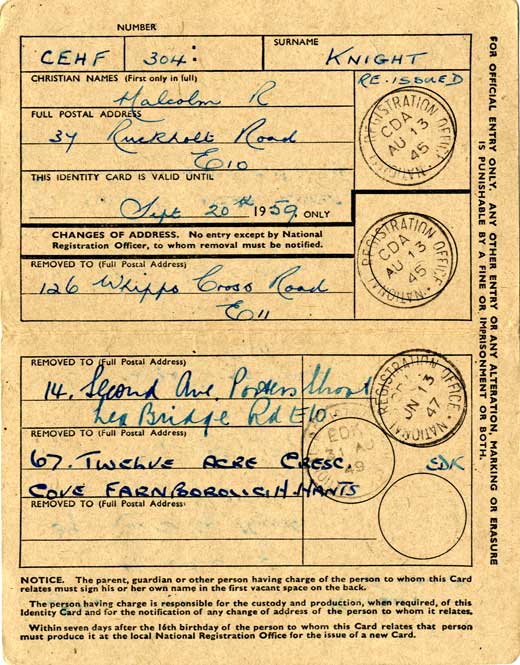 NUMBER
SURNAME
CEHF 304: KNIGHT
CHRISTIAN NAMES (First only in full)
RE-ISSUED
Malcolm R
FULL POSTAL ADDRESS
37 Ruckholt Road
E10
THIS IDENTITY CARD IS VALID UNTIL
Sept 20th 1959 ONLY
NATIONAL REGISTRATION OFFICE
CDA
AU 13
45
CHANGES OF ADDRESS. No entry except by National
Registration Officer, to whom removal must be notified.
REMOVED TO (Full Postal Address)
126 Whipps Cross Road
E11
NATIONAL REGISTRATION OFFICE
CDA
AU 13
45
FOR OFFICIAL ENTRY ONLY. ANY OTHER ENTRY OR ANY ALTERATION, MARKING OR ERASURE
IS PUNISHABLE BY A FINE OR IMPRISONMENT OR BOTH.
REMOVED TO (Full Postal Address)
14. Second Ave.
Lea Bridge Rd E10
NATIONAL REGISTRATION OFFICE
JN 13
47
REMOVED TO (Full Postal Address)
67. TWELVE ACRE CRESC EDK
COVE FARNBOROUGH HANTS
EDK
31 AU
49
REMOVED TO (Full Postal Address)
NOTICE. The parent, guardian or other person having charge of the person to whom this Card
relates must sign his or her own name in the first vacant space on the back.
The person having charge is responsible for the custody and production, when required, of this
Identity Card and for the notification of any change of address of the person to whom it relates.
Within seven days after the 16th birthday of the person to whom this Card relates that person
must produce it at the local National Registration Office for the issue of a new Card.